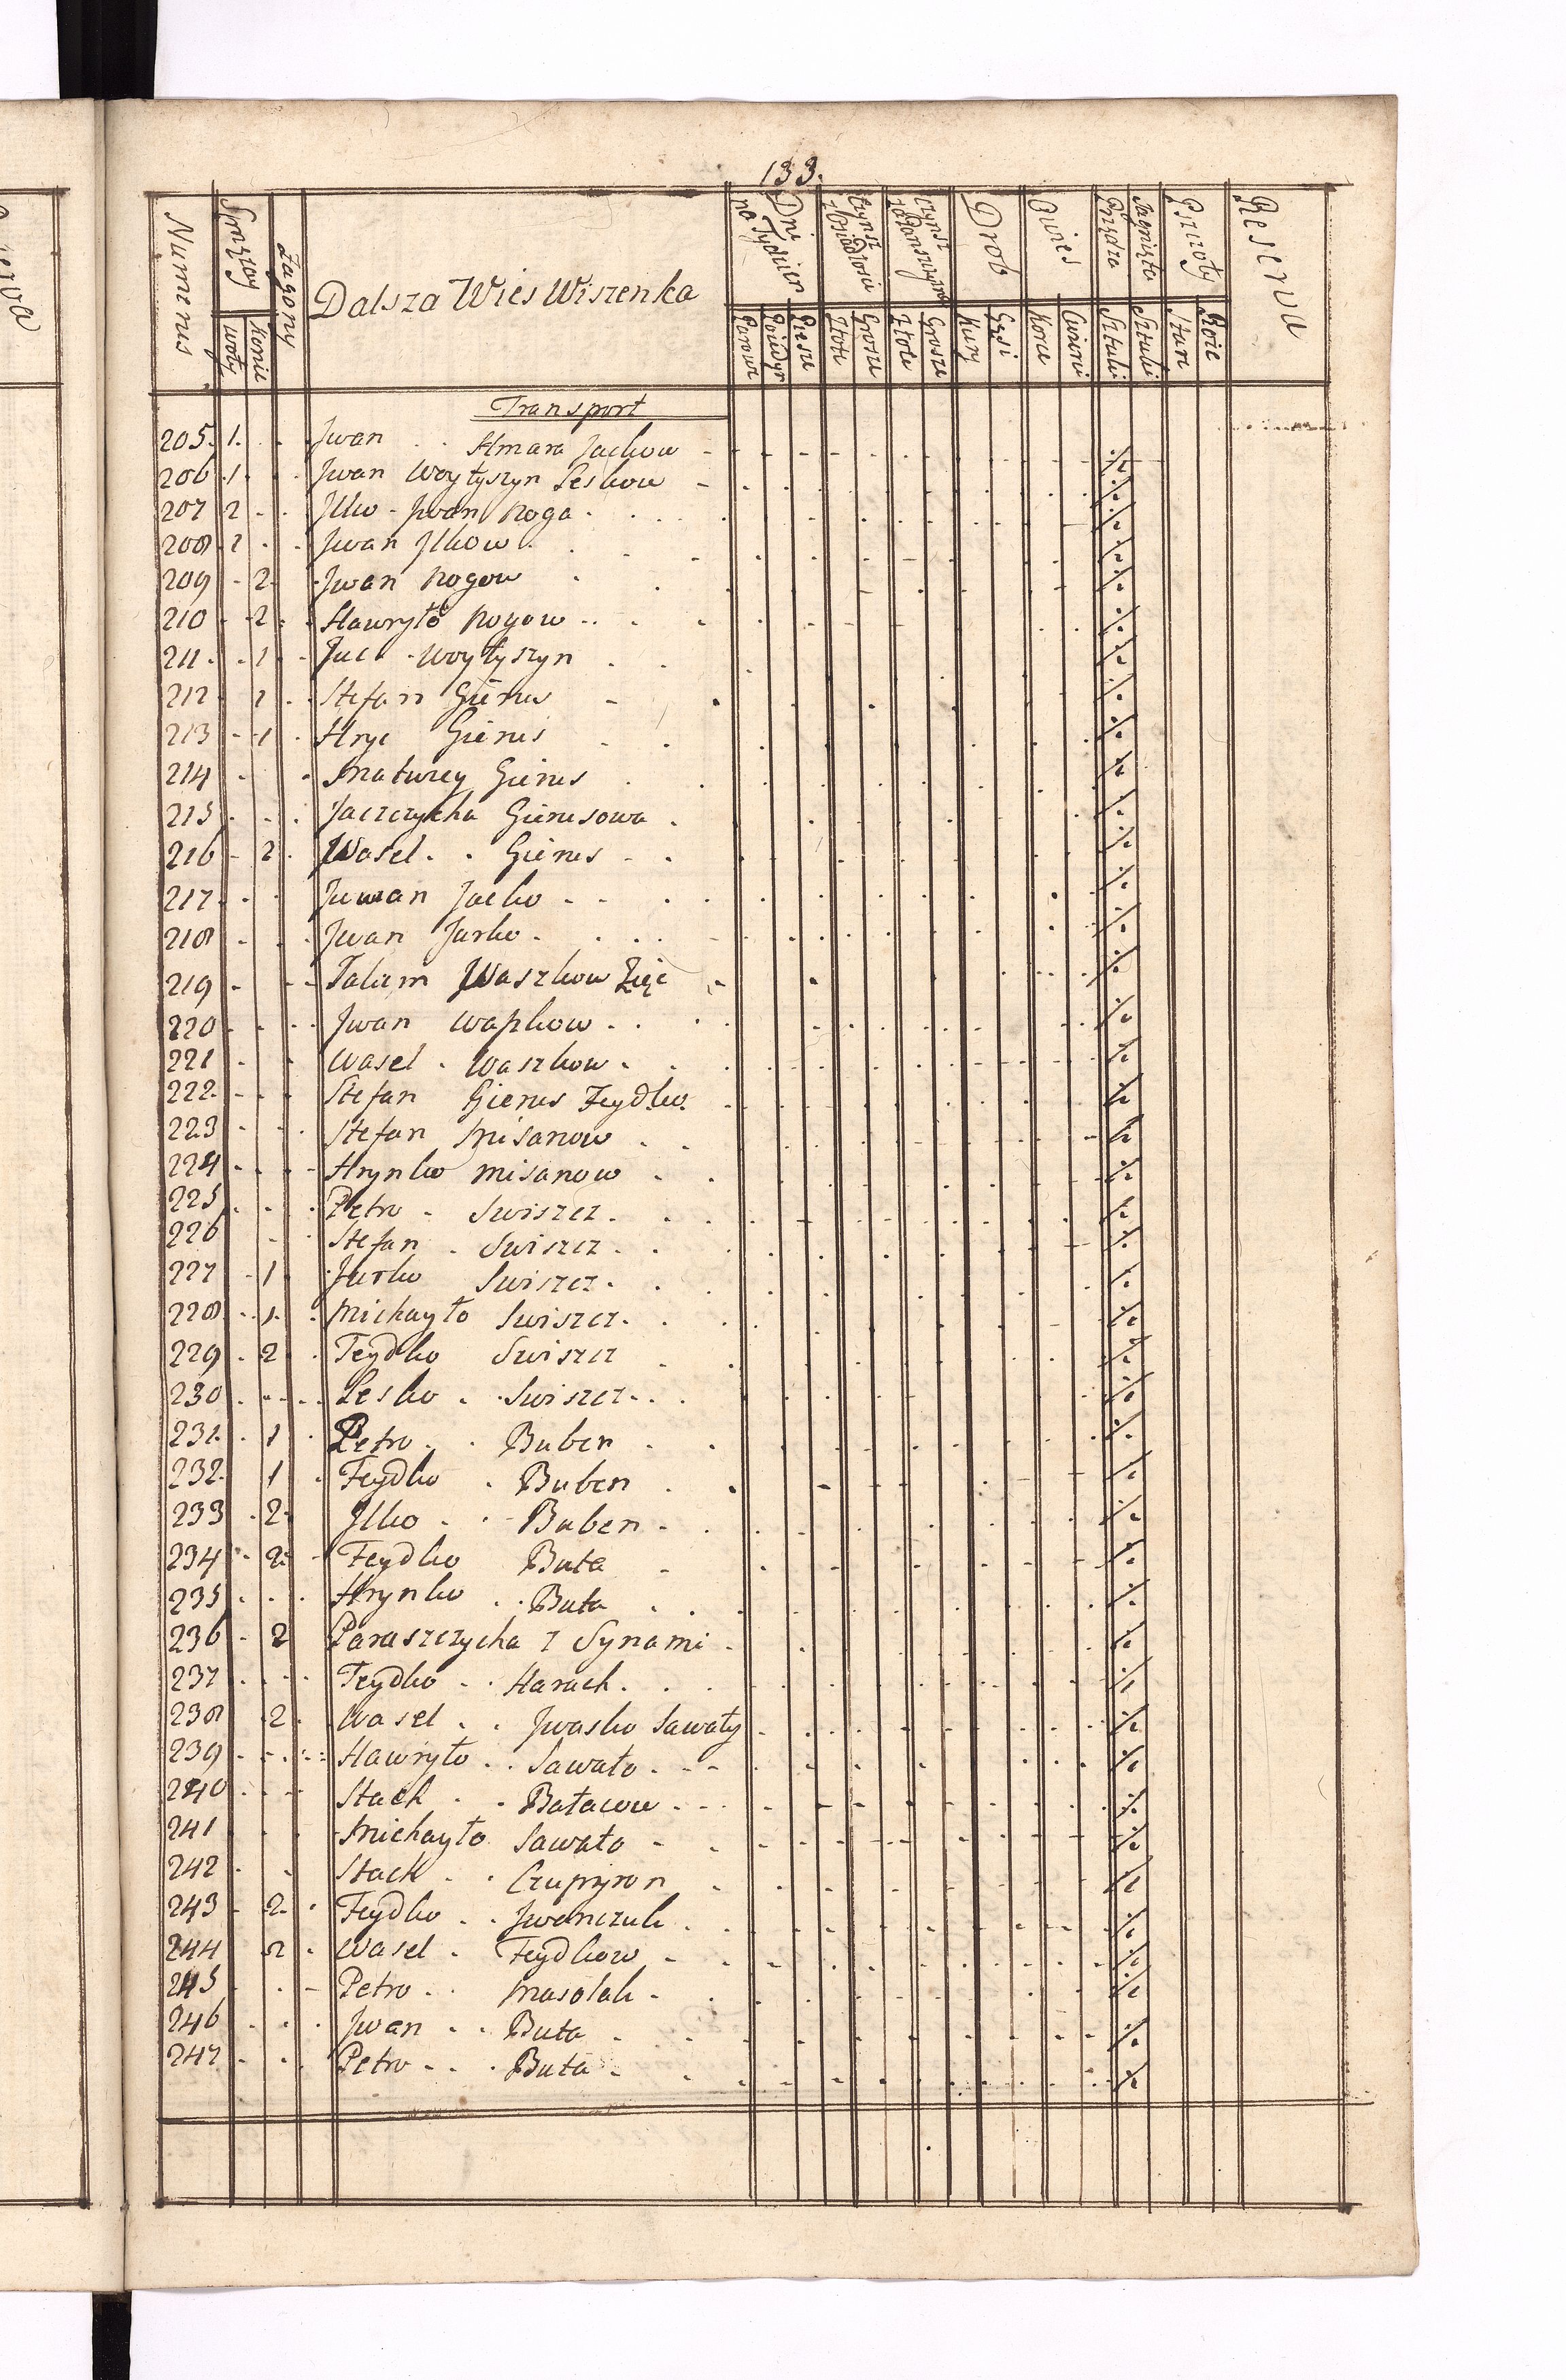 133.
Numerus
Sprzężay
woły
Konie
Zagony
Dalsza Wies Wiszenka
Dni na Tydzien
Parowe
Poiedyn
Piesze
Czynsz z Osiadłosci
Złote
Grosze
Czynsz
Złote
Grosze
Drob
Kury
Gęsi
Owies
Korce
Cwierci
Przędza
Sztuki
Sztuki
Pszczoły
Stare
Roie
Reserva
Transport
205. 1. Jwan Hmara Jackow
206 1. Jwan Woytyszyn Leskow
207 2 Jlko Jwan Roga
208 2 Jwan Jlkow
209 2 Jwan Rogow
210 2 Hawryło Rogow
211. 1 Juc Woytyszyn
212 1 Stefan Gienes
213 1 Hryc Gienes
214 Matwiey Gienes
215 Jaczczycha Gienesowa
216 2 Wasel Gienes
217 Juwan Jacko
218 Jwan Jurko
219 Waszkow Zięc
220 Jwan
221 Wasel Waszkow
222. Stefan Gienes Feydko
223 Stefan Misanow
224 Hrynko Misanow
225 Petro Swiszcz
226 Stefan Swiszcz
227 1 Jurko Swiszcz
228 1. Michayło Swiszcz
229 2 Feydko Swiszcz
230 Lesko Swiszcz
231. 1 Petro Buben
232. 1 Feydko Buben
233 2 Jlko Buben
234 2 Feydko Buta
235 Hrynko Buta
236 2 Paraszczycha z Synami
237 Feydko Harach
238 2 Wasel Jwasko Sawały
239 Hawryło Sawała
240 Stach Bałacow
241 Michayło Sawała
242 Stach Czupryon
243 2 Feydko Jwanczuk
244 2 Wasel Feydkow
245 Petro Masolak
246 Jwan Buta
247 Petro Buta